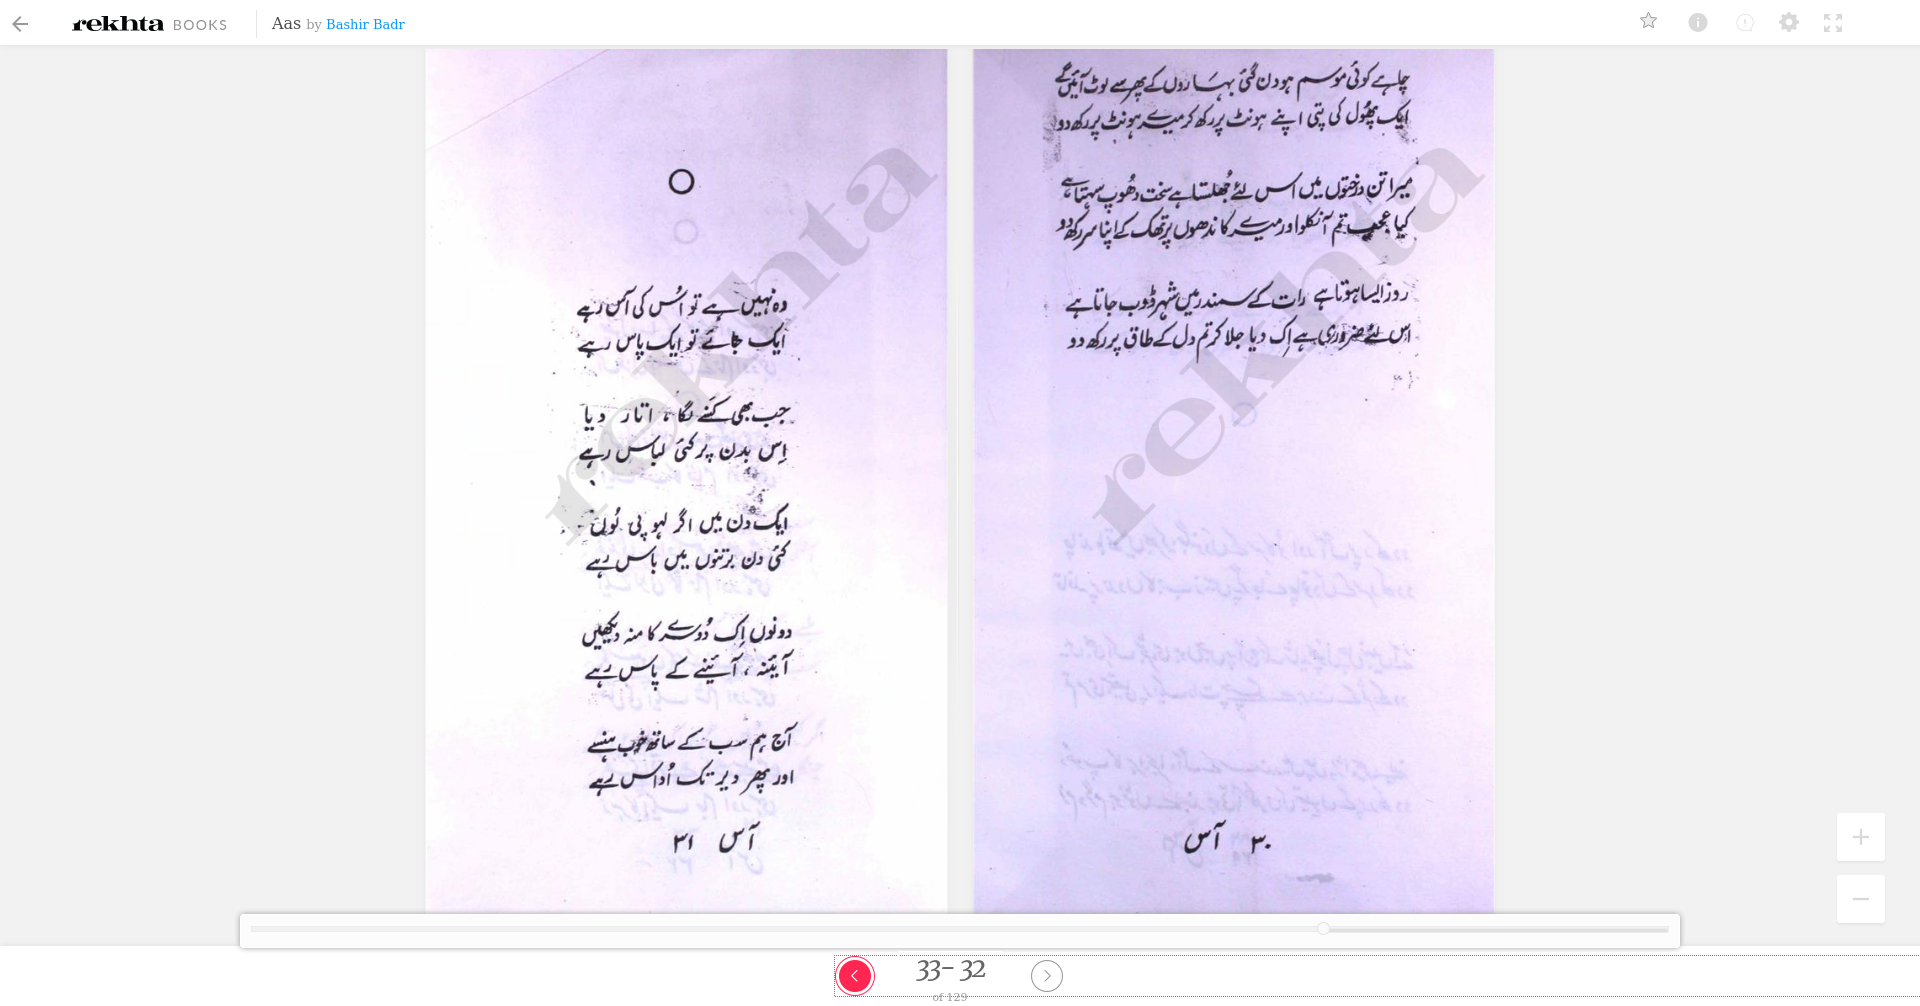 rekhta BOOKS
Aas by Bashir Badr
چاہے کوئی موسم ہو دن گئی بہاروں کے پھر سے لوٹ آئیں گے
ایک پھول کی پتی اپنے ہونٹ پر رکھ کر میرے ہونٹ پر رکھ دو
میرا تن درختوں میں اس لئے جُھلستا ہے سخت دھُوپ سہتا ہے
کیا عجب تم آ نکلو اور میرے کاندھوں پر تھک کے اپنا سر رکھ دو
روز ایسا ہوتا ہے رات کے سمندر میں شہر ڈوب جاتا ہے
اس لئے ضروری ہے اِک دیا جلا کر تم دل کے طاق پر رکھ دو
۳۰ آس
وہ نہیں ہے تو اُس کی آس رہے
ایک جائے تو ایک پاس رہے
جب بھی کسنے لگا، اتار دیا
اِس بدن پر کئی لباس رہے
ایک دن میں اگر لہو پی لُوں
کئی دن برتنوں میں باس رہے
دونوں اِک دُوسرے کا منہ دیکھیں
آئینہ، آئینے کے پاس رہے
آج ہم سب کے ساتھ خوب ہنسے
اور پھر دیر تک اُداس رہے
آس ۳۱
rekhta
rekhta
33- 32
of 129